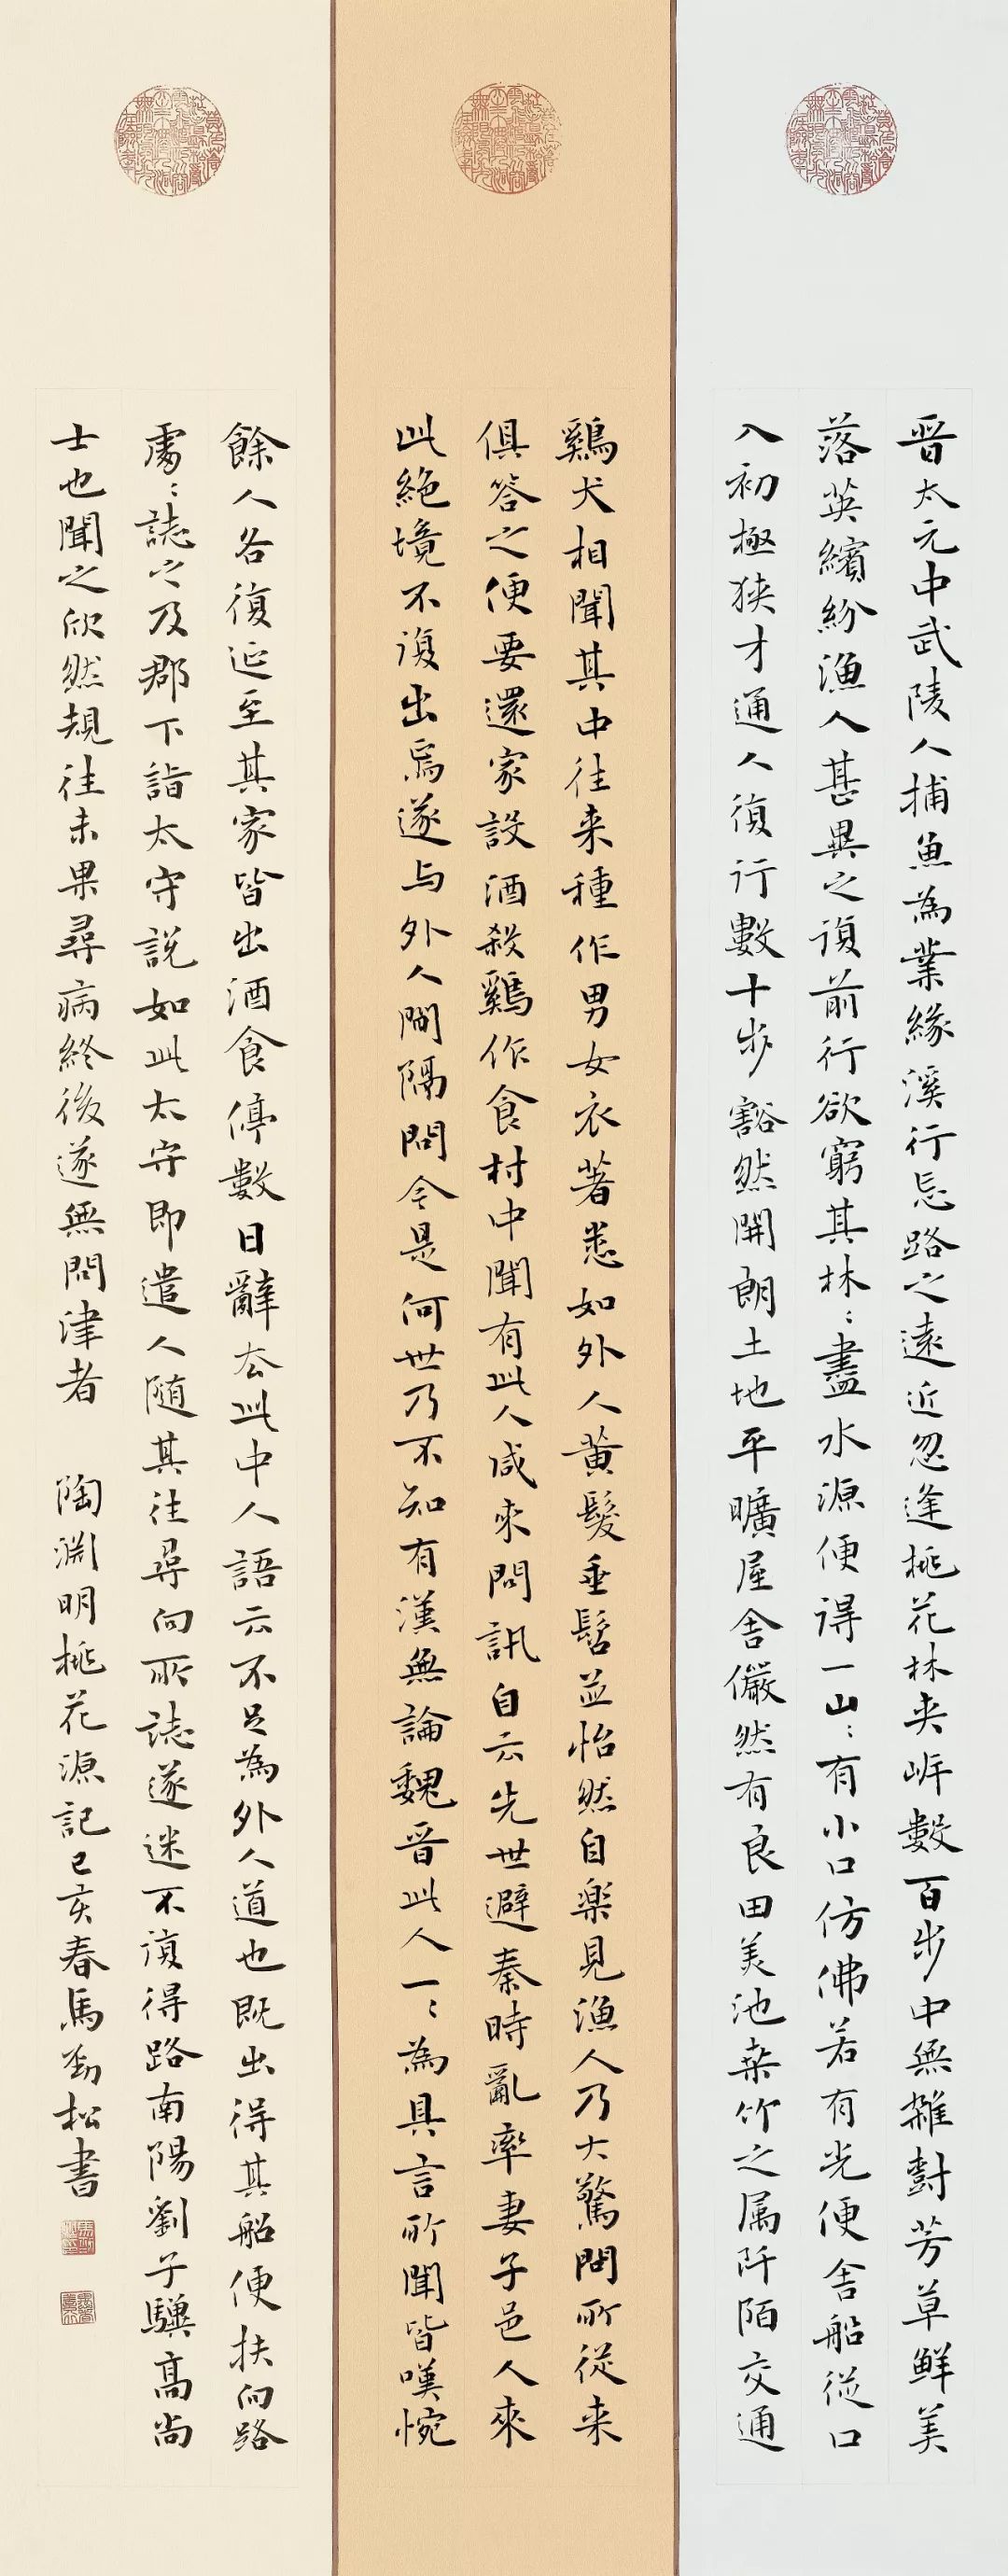 晉太元中武陵人捕魚為業緣溪行忘路之遠近忽逢桃花林夾岸數百步中無雜樹芳草鮮美
落英繽紛漁人甚異之復前行欲窮其林〻盡水源便得一山〻有小口仿佛若有光便舍船從口
入初極狹才通人復行數十步豁然開朗土地平曠屋舍儼然有良田美池桑竹之属阡陌交通
鷄犬相聞其中往来種作男女衣著悉如外人黄髮垂髫並怡然自樂見漁人乃大驚問所從来
俱答之便要還家設酒殺鷄作食村中聞有此人咸來問訊自云先世避秦時亂率妻子邑人來
此絶境不復出焉遂与外人間隔問今是何世乃不知有漢無論魏晋此人一〻為具言所聞皆嘆惋
餘人各復延至其家皆出酒食停數日辭去此中人語云不足為外人道也既出得其船便扶向路
處〻誌之及郡下詣太守説如此太守即遣人随其往尋向所誌遂迷不復得路南陽劉子驥高尚
士也聞之欣然規往未果尋病終後遂無問津者 陶淵明桃花源記己亥春馬勁松書